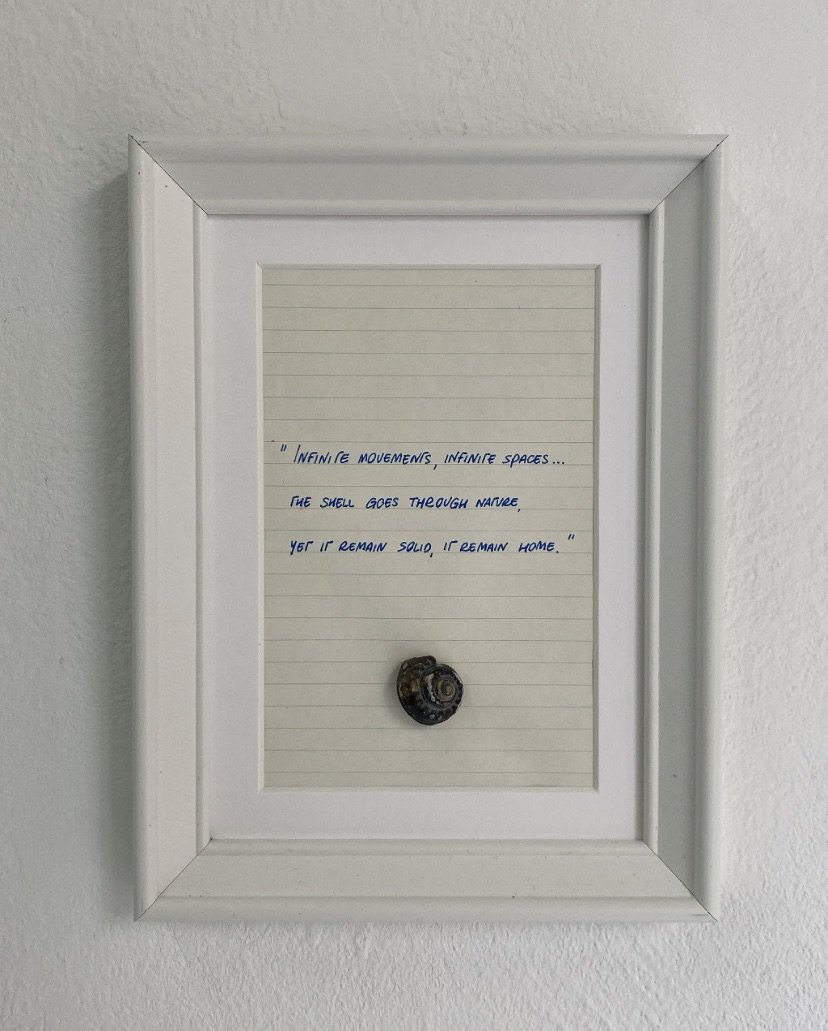 "INFINITE MOVEMENTS, INFINITE SPACES...
THE SHELL GOES THROUGH NATURE,
YET IT REMAIN SOLID, IT REMAIN HOME."